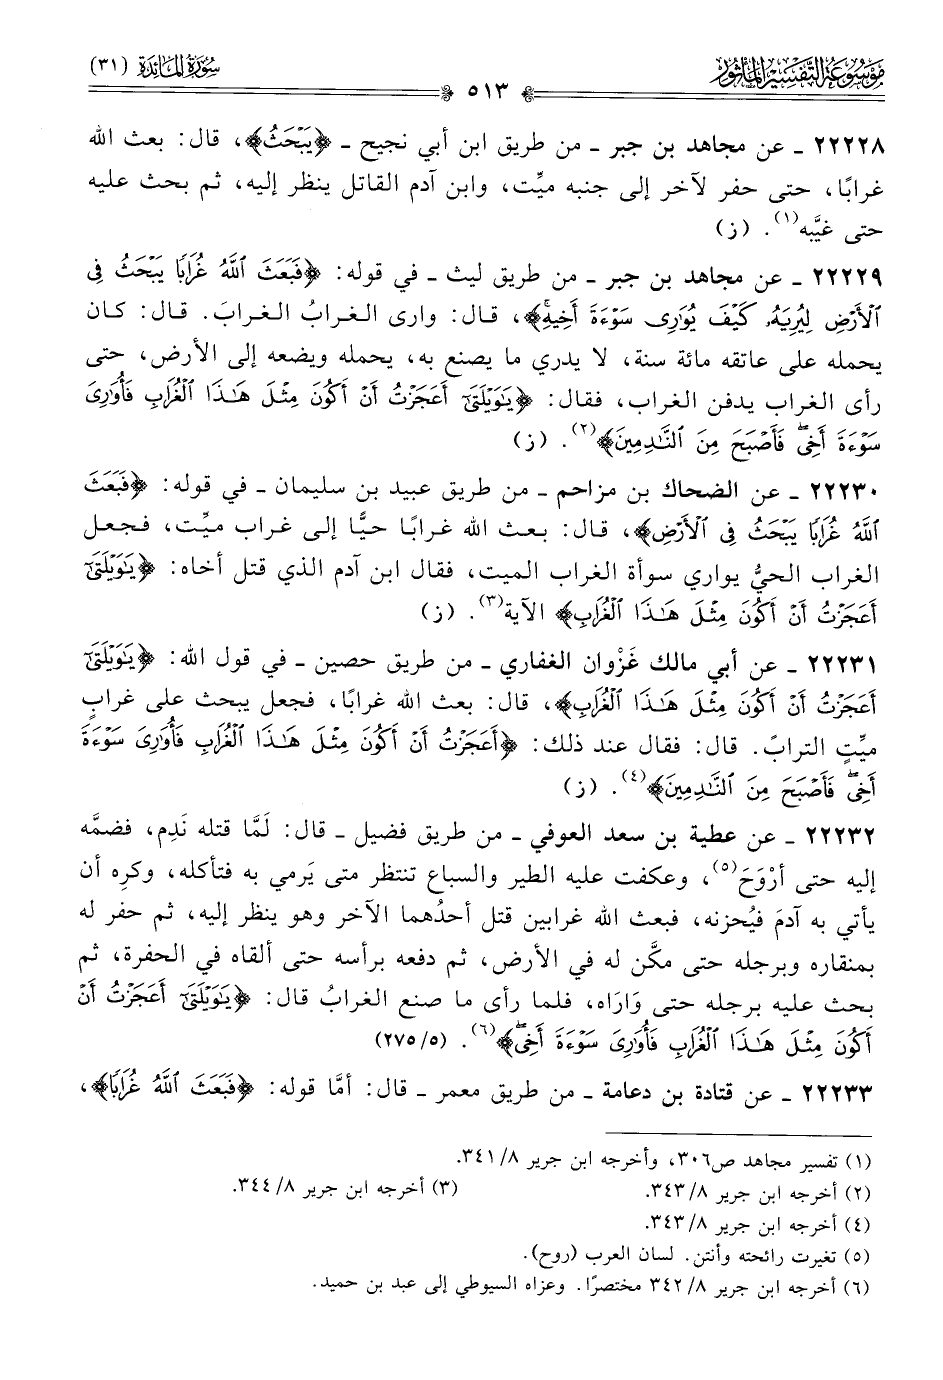 مَوْسُوعَةُ التَّفْسِيرِ المَأْثُورِ
سُورَةُ المَائِدَة (٣١)
٥١٣
٢٢٢٢٨ ـ عن مجاهد بن جبر ـ من طريق ابن أبي نجيح ـ ﴿يَبْحَثُ﴾، قال: بعث الله
غرابًا، حتى حفر لآخر إلى جنبه ميِّت، وابن آدم القاتل ينظر إليه، ثم بحث عليه
حتى غيَّبه(١). (ز)
٢٢٢٢٩ ـ عن مجاهد بن جبر ـ من طريق ليث ـ في قوله: ﴿فَبَعَثَ ٱللَّهُ غُرَابًا يَبْحَثُ فِى
ٱلْأَرْضِ لِيُرِيَهُۥ كَيْفَ يُوَٰرِى سَوْءَةَ أَخِيهِ﴾، قال: وارى الغرابُ الغرابَ. قال: كان
يحمله على عاتقه مائة سنة، لا يدري ما يصنع به، يحمله ويضعه إلى الأرض، حتى
رأى الغراب يدفن الغراب، فقال: ﴿يَٰوَيْلَتَىٰٓ أَعَجَزْتُ أَنْ أَكُونَ مِثْلَ هَٰذَا ٱلْغُرَابِ فَأُوَٰرِىَ
سَوْءَةَ أَخِى فَأَصْبَحَ مِنَ ٱلنَّٰدِمِينَ﴾(٢). (ز)
٢٢٢٣٠ ـ عن الضحاك بن مزاحم ـ من طريق عبيد بن سليمان ـ في قوله: ﴿فَبَعَثَ
ٱللَّهُ غُرَابًا يَبْحَثُ فِى ٱلْأَرْضِ﴾، قال: بعث الله غرابًا حيًّا إلى غراب ميِّت، فجعل
الغراب الحيُّ يواري سوأة الغراب الميت، فقال ابن آدم الذي قتل أخاه: ﴿يَٰوَيْلَتَىٰٓ
أَعَجَزْتُ أَنْ أَكُونَ مِثْلَ هَٰذَا ٱلْغُرَابِ﴾ الآية(٣). (ز)
٢٢٢٣١ ـ عن أبي مالك غَزْوان الغفاري ـ من طريق حصين ـ في قول الله: ﴿يَٰوَيْلَتَىٰٓ
أَعَجَزْتُ أَنْ أَكُونَ مِثْلَ هَٰذَا ٱلْغُرَابِ﴾، قال: بعث الله غرابًا، فجعل يبحث على غرابٍ
ميِّتٍ الترابَ. قال: فقال عند ذلك: ﴿أَعَجَزْتُ أَنْ أَكُونَ مِثْلَ هَٰذَا ٱلْغُرَابِ فَأُوَٰرِىَ سَوْءَةَ
أَخِى فَأَصْبَحَ مِنَ ٱلنَّٰدِمِينَ﴾(٤). (ز)
٢٢٢٣٢ ـ عن عطية بن سعد العوفي ـ من طريق فضيل ـ قال: لَمَّا قتله نَدِم، فضمَّه
إليه حتى أَرْوَحَ(٥)، وعكفت عليه الطير والسباع تنتظر متى يَرمي به فتأكله، وكرِه أن
يأتي به آدمَ فيُحزنه، فبعث الله غرابين قتل أحدُهما الآخر وهو ينظر إليه، ثم حفر له
بمنقاره وبرجله حتى مكَّن له في الأرض، ثم دفعه برأسه حتى ألقاه في الحفرة، ثم
بحث عليه برجله حتى وَارَاه، فلما رأى ما صنع الغرابُ قال: ﴿يَٰوَيْلَتَىٰٓ أَعَجَزْتُ أَنْ
أَكُونَ مِثْلَ هَٰذَا ٱلْغُرَابِ فَأُوَٰرِىَ سَوْءَةَ أَخِى﴾(٦). (٢٧٥/٥)
٢٢٢٣٣ ـ عن قتادة بن دعامة ـ من طريق معمر ـ قال: أمَّا قوله: ﴿فَبَعَثَ ٱللَّهُ غُرَابًا﴾،
(١) تفسير مجاهد ص٣٠٦، وأخرجه ابن جرير ٣٤١/٨.
(٢) أخرجه ابن جرير ٣٤٣/٨. (٣) أخرجه ابن جرير ٣٤٤/٨.
(٤) أخرجه ابن جرير ٣٤٣/٨.
(٥) تغيرت رائحته وأنتن. لسان العرب (روح).
(٦) أخرجه ابن جرير ٣٤٢/٨ مختصرًا. وعزاه السيوطي إلى عبد بن حميد.